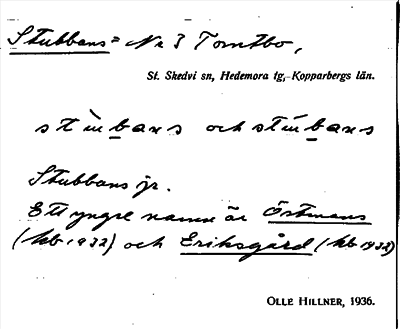 Stubbans = Nr 3 Tomtbo,
St. Skedvi sn, Hedemora tg, Kopparbergs län.
stùbans och stúbans
Stubbans jr.
Ett yngre namn är Östmans
(kb 1932) och Eriksgård (kb 1932)
OLLE HILLNER, 1936.